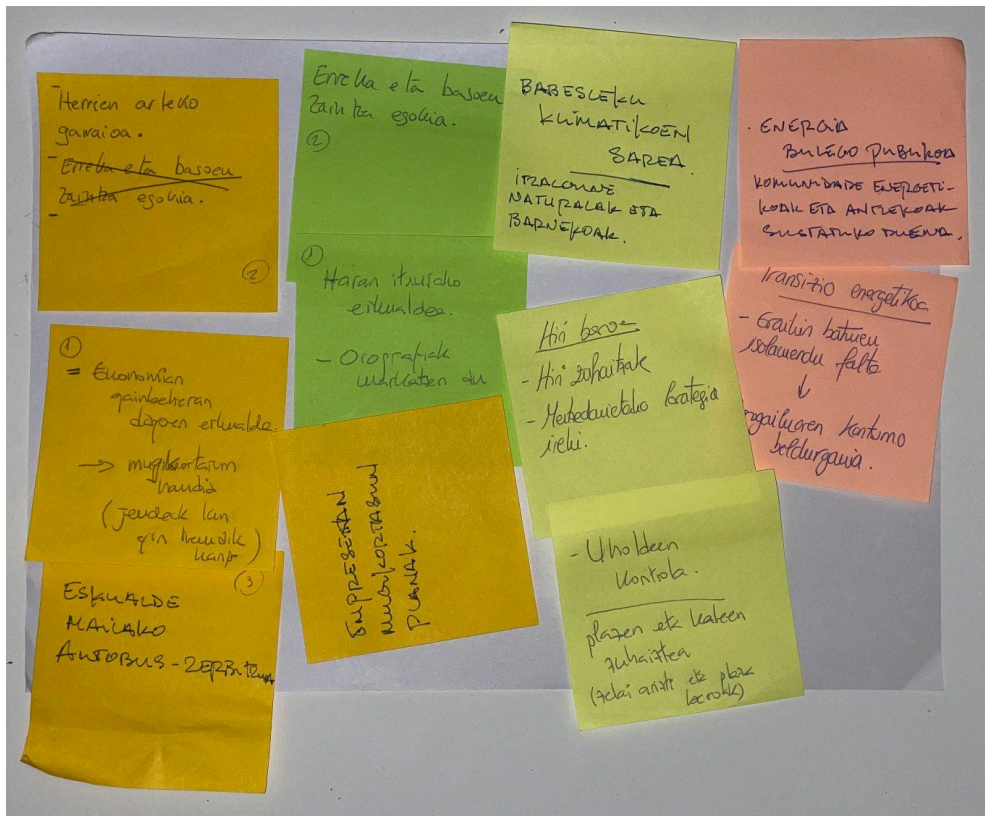 - Herrien arteko
garraioa.
- Erreka eta basoen
zaintza egokia.
-
2
1
= Ekonomian
gainbeheran
dagoen eskualdea.
→ mugikortasun
handia
(jendeak lan
egin hemendik
kanpo)
3
ESKUALDE
MAILAKO
AUTOBUS-ZERBITZUA
Erreka eta basoen
zaintza egokia.
2
1
Haran itxurako
eskualdea.
- Orografiak
markatzen du
ENPRESETAN
MUGIKORTASUN
PLANAK.
BABESLEKU
KLIMATIKOEN
SAREA.
ITZALGUNE
NATURALAK ETA
BARNEKOAK.
Hiri beroa
- Hiri zuhaitzak
- Merkedarietako
ireki.
- Uholdeen
kontrola.
plazen eta kaleen
zuhaiztea
(zelai anitz eta plaza
. ENERGIA
BULEGO PUBLIKOA
KOMUNIDADE ENERGETI-
KOAK ETA ANTZEKOAK
SUSTATUKO DUENA.
Transitio energetikoa
- Eraikin batzuen
isolamendu falta
↓
kontsumo
beldurgarria.